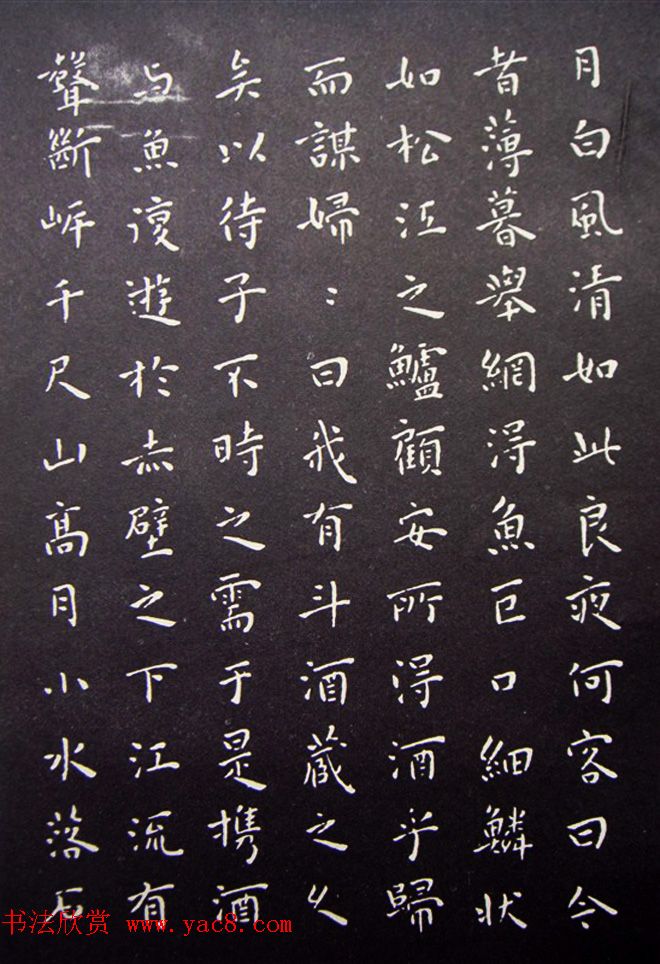 月白風清如此良夜何客曰今
者薄暮舉網得魚巨口細鱗狀
如松江之鱸顧安所得酒乎歸
而謀婦〻曰我有斗酒藏之久
矣以待子不時之需于是携酒
与魚復遊於赤壁之下江流有
聲斷岸千尺山高月小水落石
书法欣赏 www.yac8.com